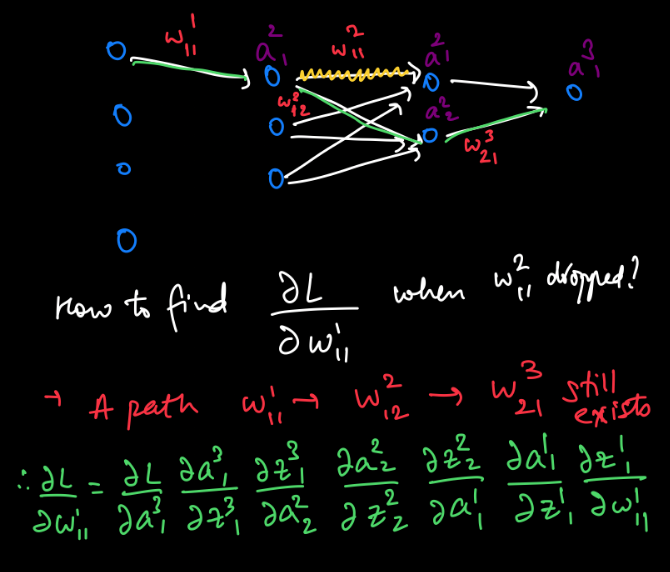 w¹₁₁ a²₁ w²₁₁ a²₁ a³₁
w²₁₂ a²₂ w³₂₁
How to find ∂L/∂w¹₁₁ when w²₁₁ dropped?
→ A path w¹₁₁ → w²₁₂ → w³₂₁ still exists
∴ ∂L/∂w¹₁₁ = ∂L/∂a³₁ ∂a³₁/∂z³₁ ∂z³₁/∂a²₂ ∂a²₂/∂z²₂ ∂z²₂/∂a¹₁ ∂a¹₁/∂z¹₁ ∂z¹₁/∂w¹₁₁